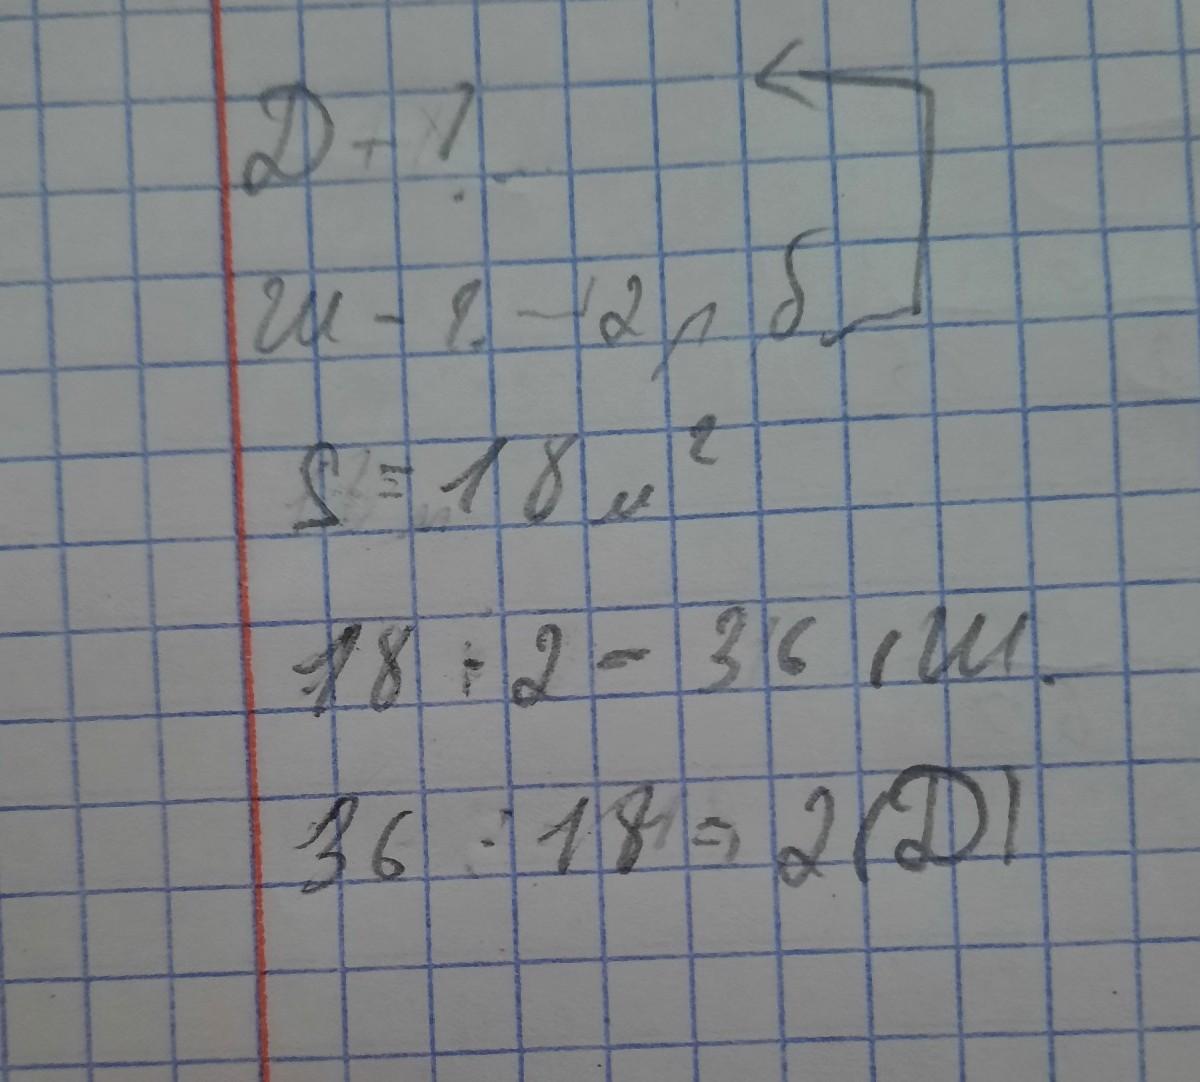 Д - ?
Ш - ? - 2 р б
S = 18 м²
18 · 2 = 36 (Ш.
36 : 18 = 2 (Д)